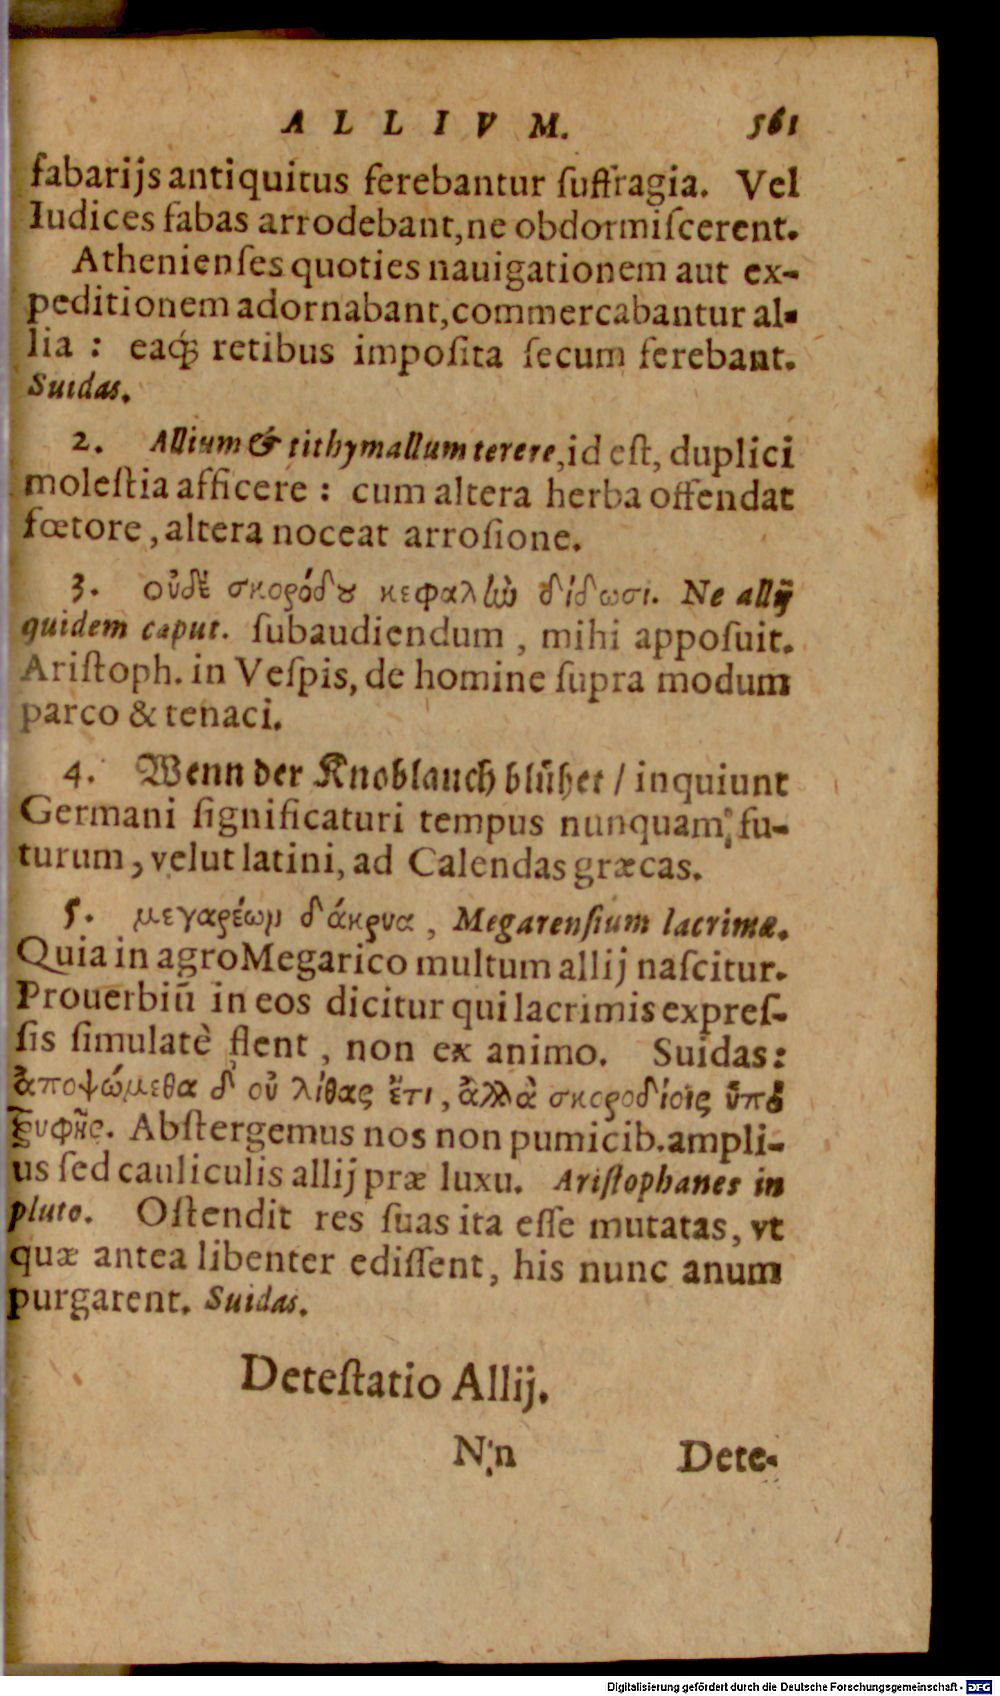 ALLIVM. 561
fabarijs antiquitus ferebantur ſuffragia. Vel
Iudices fabas arrodebant, ne obdormiſcerent.
Athenienſes quoties nauigationem aut ex-
peditionem adornabant, commercabantur al-
lia : eaq́; retibus impoſita ſecum ferebant.
Suidas.
2. Allium & tithymallum terere, id eſt, duplici
moleſtia afficere : cum altera herba offendat
fœtore, altera noceat arroſione.
3. οὐδὲ σκορόδȣ κεφαλὼ δίδωσι. Ne allij
quidem caput. ſubaudiendum, mihi appoſuit.
Ariſtoph. in Veſpis, de homine ſupra modum
parco & tenaci.
4. Wenn der Knoblauch blühet / inquiunt
Germani ſignificaturi tempus nunquam fu-
turum, velut latini, ad Calendas græcas.
5. μεγαρέωμ δάκρυα, Megarenſium lacrimæ.
Quia in agro Megarico multum allij naſcitur.
Prouerbiū in eos dicitur qui lacrimis expreſ-
ſis ſimulatè flent, non ex animo. Suidas:
ἀποψώμεθα δ' οὐ λίθας ἔτι, ἀλλὰ σκοροδίοις ὑπὸ
τρυφῆς. Abſtergemus nos non pumicib. ampli-
us ſed cauliculis allij præ luxu. Ariſtophanes in
pluto. Oſtendit res ſuas ita eſſe mutatas, vt
quæ antea libenter ediſſent, his nunc anum
purgarent. Suidas.
Deteſtatio Allij.
Nn Dete-
Digitalisierung gefördert durch die Deutsche Forschungsgemeinschaft - DFG